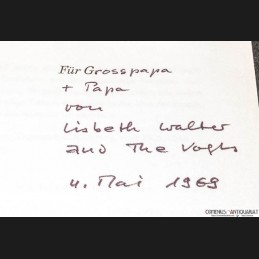 Für Grosspapa
+ Papa
von
Lisbeth Walter
and The Vogts
4. Mai 1969